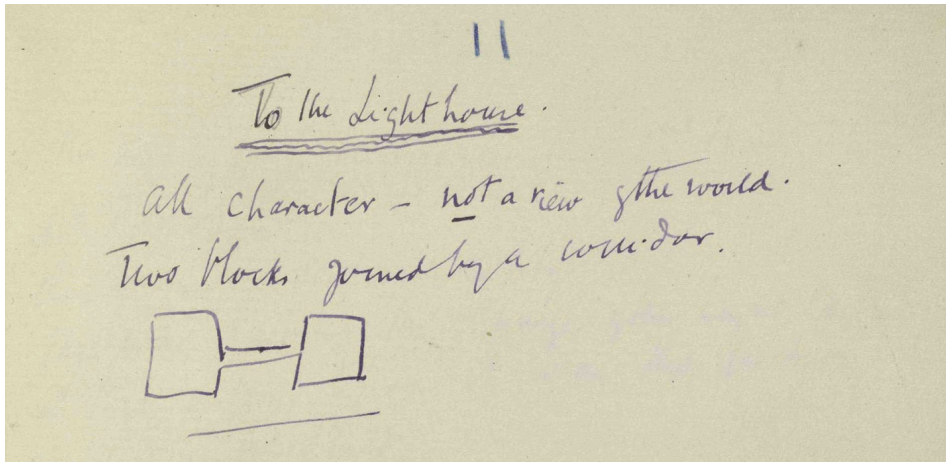 11
To the Lighthouse.
All character – not a view of the world.
Two blocks joined by a corridor.